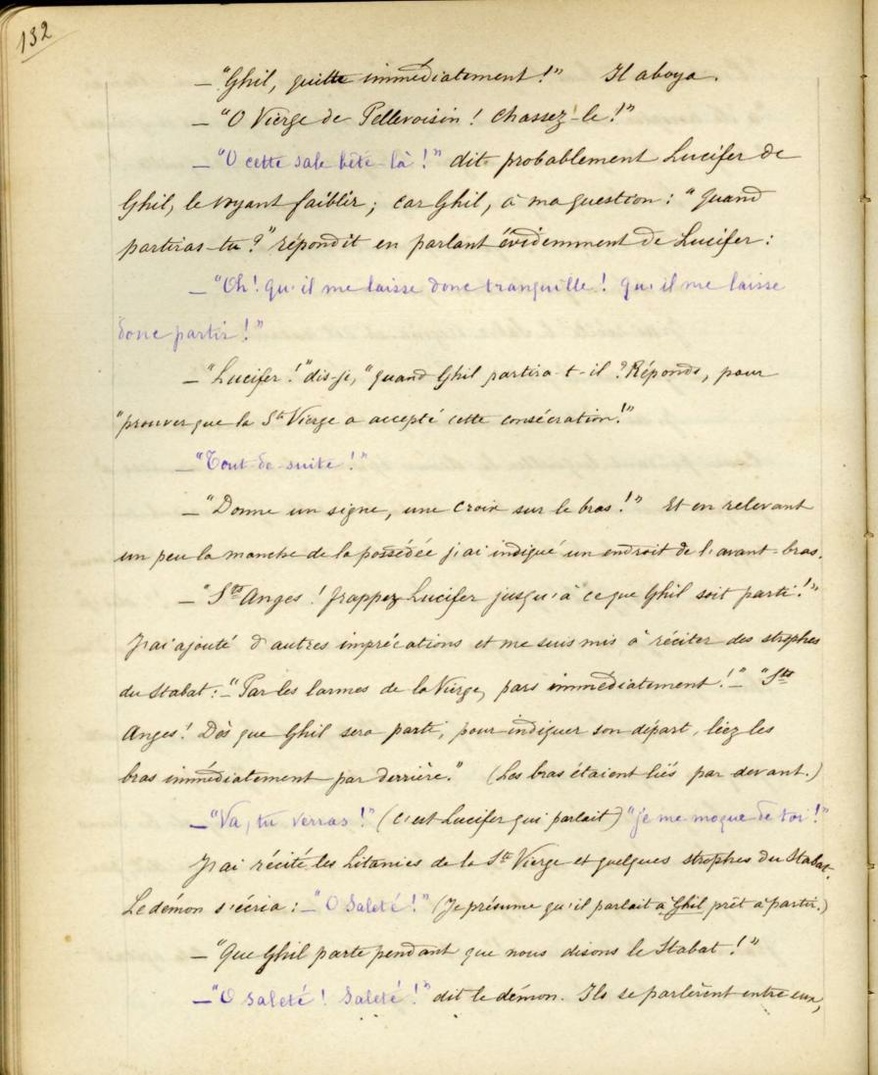 132
— "Ghil, quitte immédiatement !" Il aboya.
— "O Vierge de Pellevoisin ! Chassez-le !"
— "O cette sale bête-là !" dit probablement Lucifer de
Ghil, le voyant faiblir ; car Ghil, à ma question : "Quand
partiras-tu ?" répondit en parlant évidemment de Lucifer :
— "Oh ! qu'il me laisse donc tranquille ! qu'il me laisse
donc partir !"
— "Lucifer !" dis-je, "quand Ghil partira-t-il ? Réponds, pour
"prouver que la Ste Vierge a accepté cette consécration !"
— "Tout de suite !"
— "Donne un signe, une croix sur le bras !" Et en relevant
un peu la manche de la possédée j'ai indiqué un endroit de l'avant-bras.
— "Sts Anges ! frappez Lucifer jusqu'à ce que Ghil soit parti !"
J'ai ajouté d'autres imprécations et me suis mis à réciter des strophes
du Stabat : — "Par les larmes de la Vierge, pars immédiatement ! — "Sts
Anges ! Dès que Ghil sera parti, pour indiquer son départ, liez les
bras immédiatement par derrière." (Les bras étaient liés par devant.)
— "Va, tu verras !" (c'est Lucifer qui parlait) "je me moque de toi !"
J'ai récité les Litanies de la Ste Vierge et quelques strophes du Stabat.
Le démon s'écria : — "O Saleté !" (Je présume qu'il parlait à Ghil prêt à partir.)
— "Que Ghil parte pendant que nous disons le Stabat !"
— "O Saleté ! Saleté !" dit le démon. Ils se parlèrent entre eux,